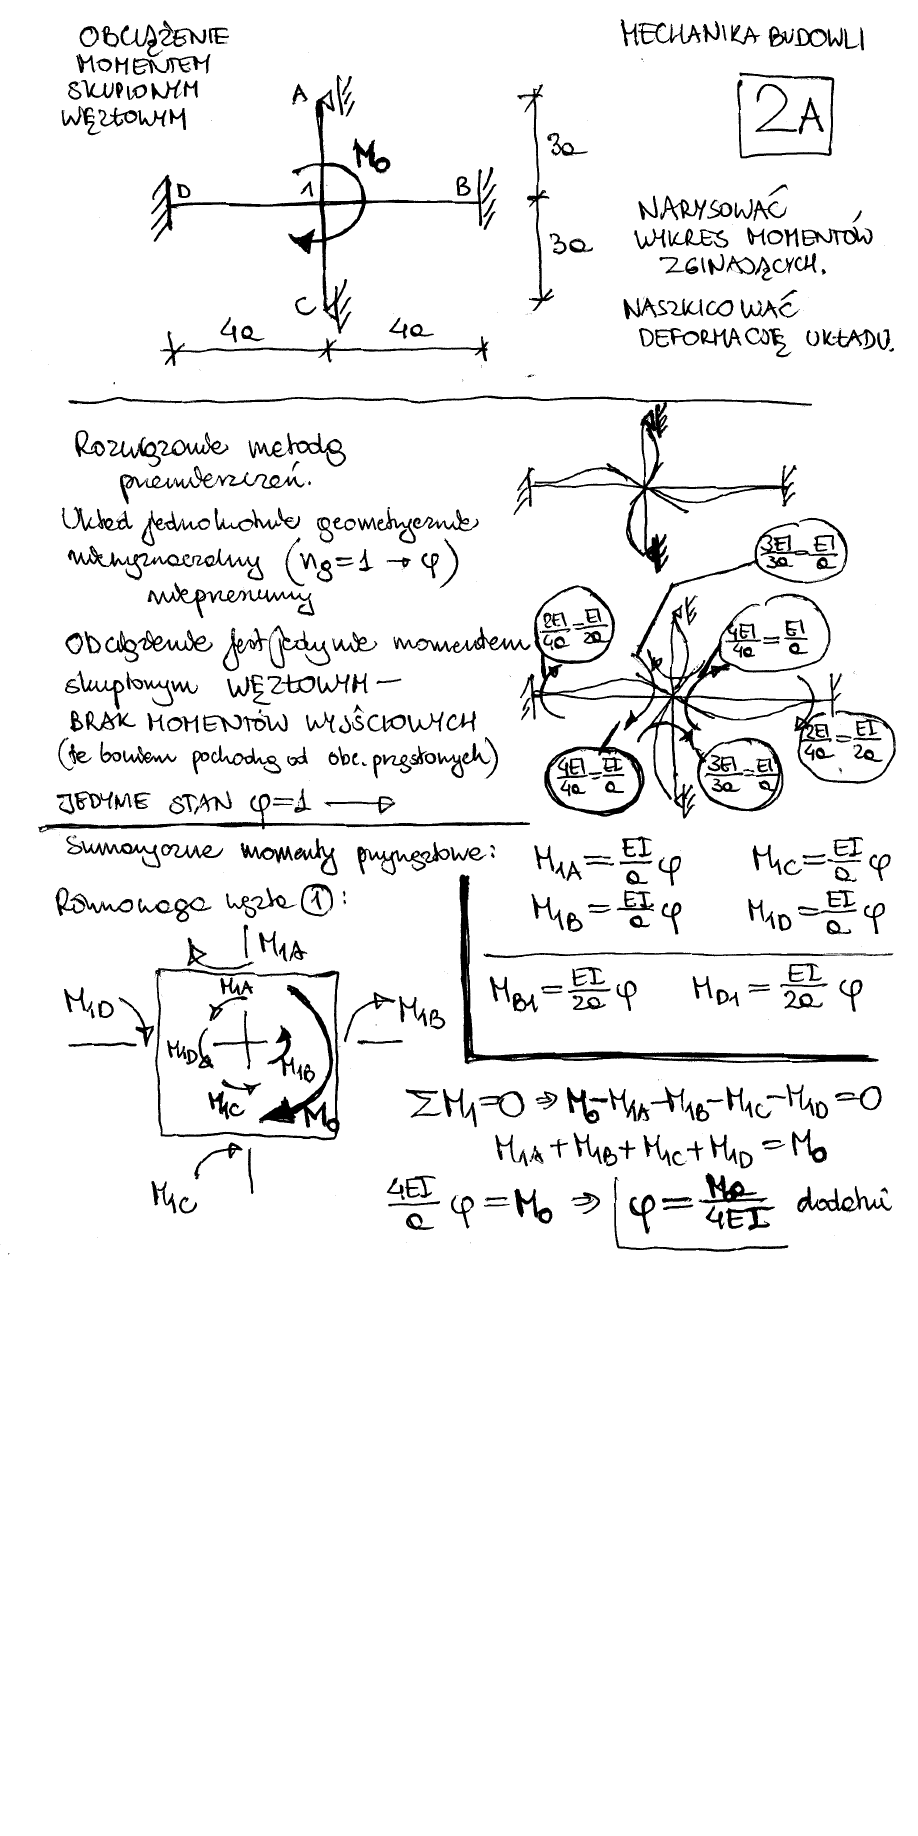 OBCIĄŻENIE
MOMENTEM
SKUPIONYM
WĘZŁOWYM
MECHANIKA BUDOWLI
2A
A
M₀
D
1
B
C
3a
3a
4a
4a
NARYSOWAĆ
WYKRES MOMENTÓW
ZGINAJĄCYCH.
NASZKICOWAĆ
DEFORMACJĘ UKŁADU.
Rozwiązanie metodą
przemieszczeń.
Układ jednokrotnie geometrycznie
niewyznaczalny (ng=1 → φ)
nieprzesuwny
Obciążenie jest jedynie momentem
skupionym WĘZŁOWYM –
BRAK MOMENTÓW WYJŚCIOWYCH
(te bowiem pochodzą od obc. przęsłowych)
JEDYNIE STAN φ=1 →
3EI/3a = EI/a
2EI/4a = EI/2a
4EI/4a = EI/a
4EI/4a = EI/a
3EI/3a = EI/a
2EI/4a = EI/2a
Sumaryczne momenty przywęzłowe:
M1A = EI/a φ M1C = EI/a φ
M1B = EI/a φ M1D = EI/a φ
MB1 = EI/2a φ MD1 = EI/2a φ
Równowaga węzła ①:
M1A
M1D
M1A
M1B
M1D
M1B
M1C
M₀
M1C
ΣM1=0 ⇒ M₀-M1A-M1B-M1C-M1D=0
M1A+M1B+M1C+M1D=M₀
4EI/a φ=M₀ ⇒ φ=M₀a/4EI dodatni